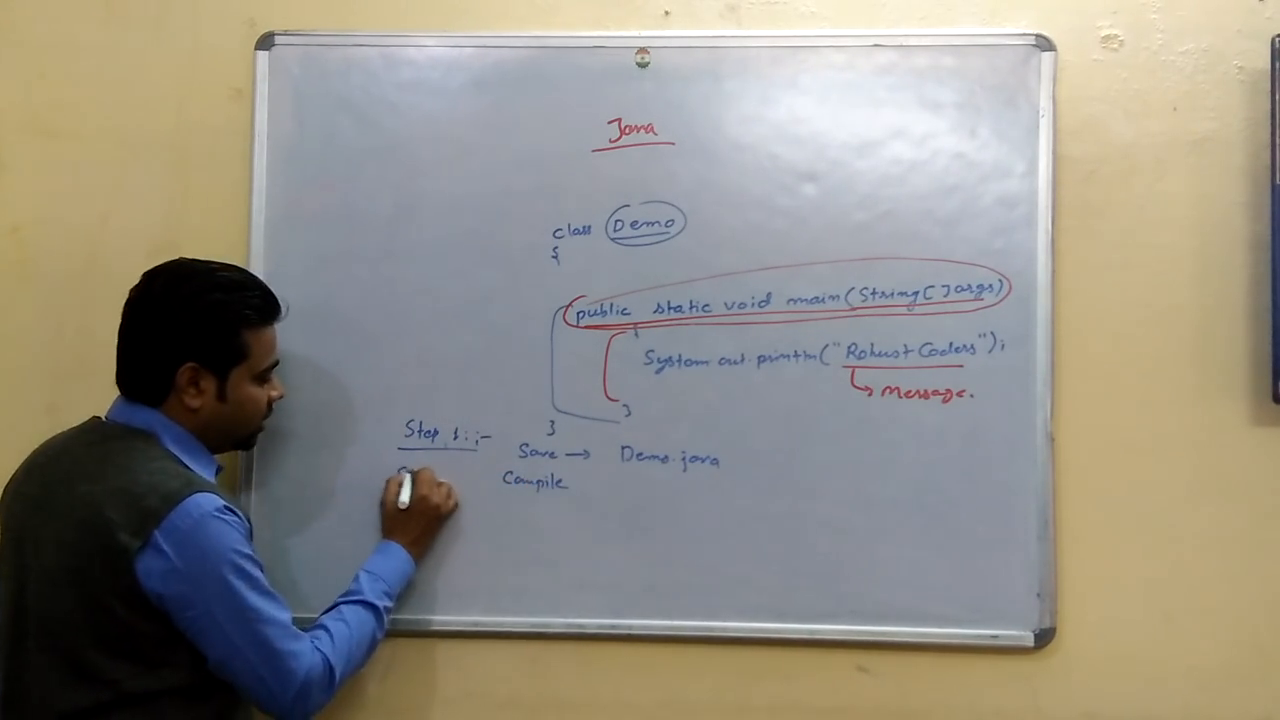 Java
class Demo
{
public static void main(String[]args)
{
System.out.println("Robust Coders");
Message.
}
}
Step 1:;-
Save → Demo.java
Compile